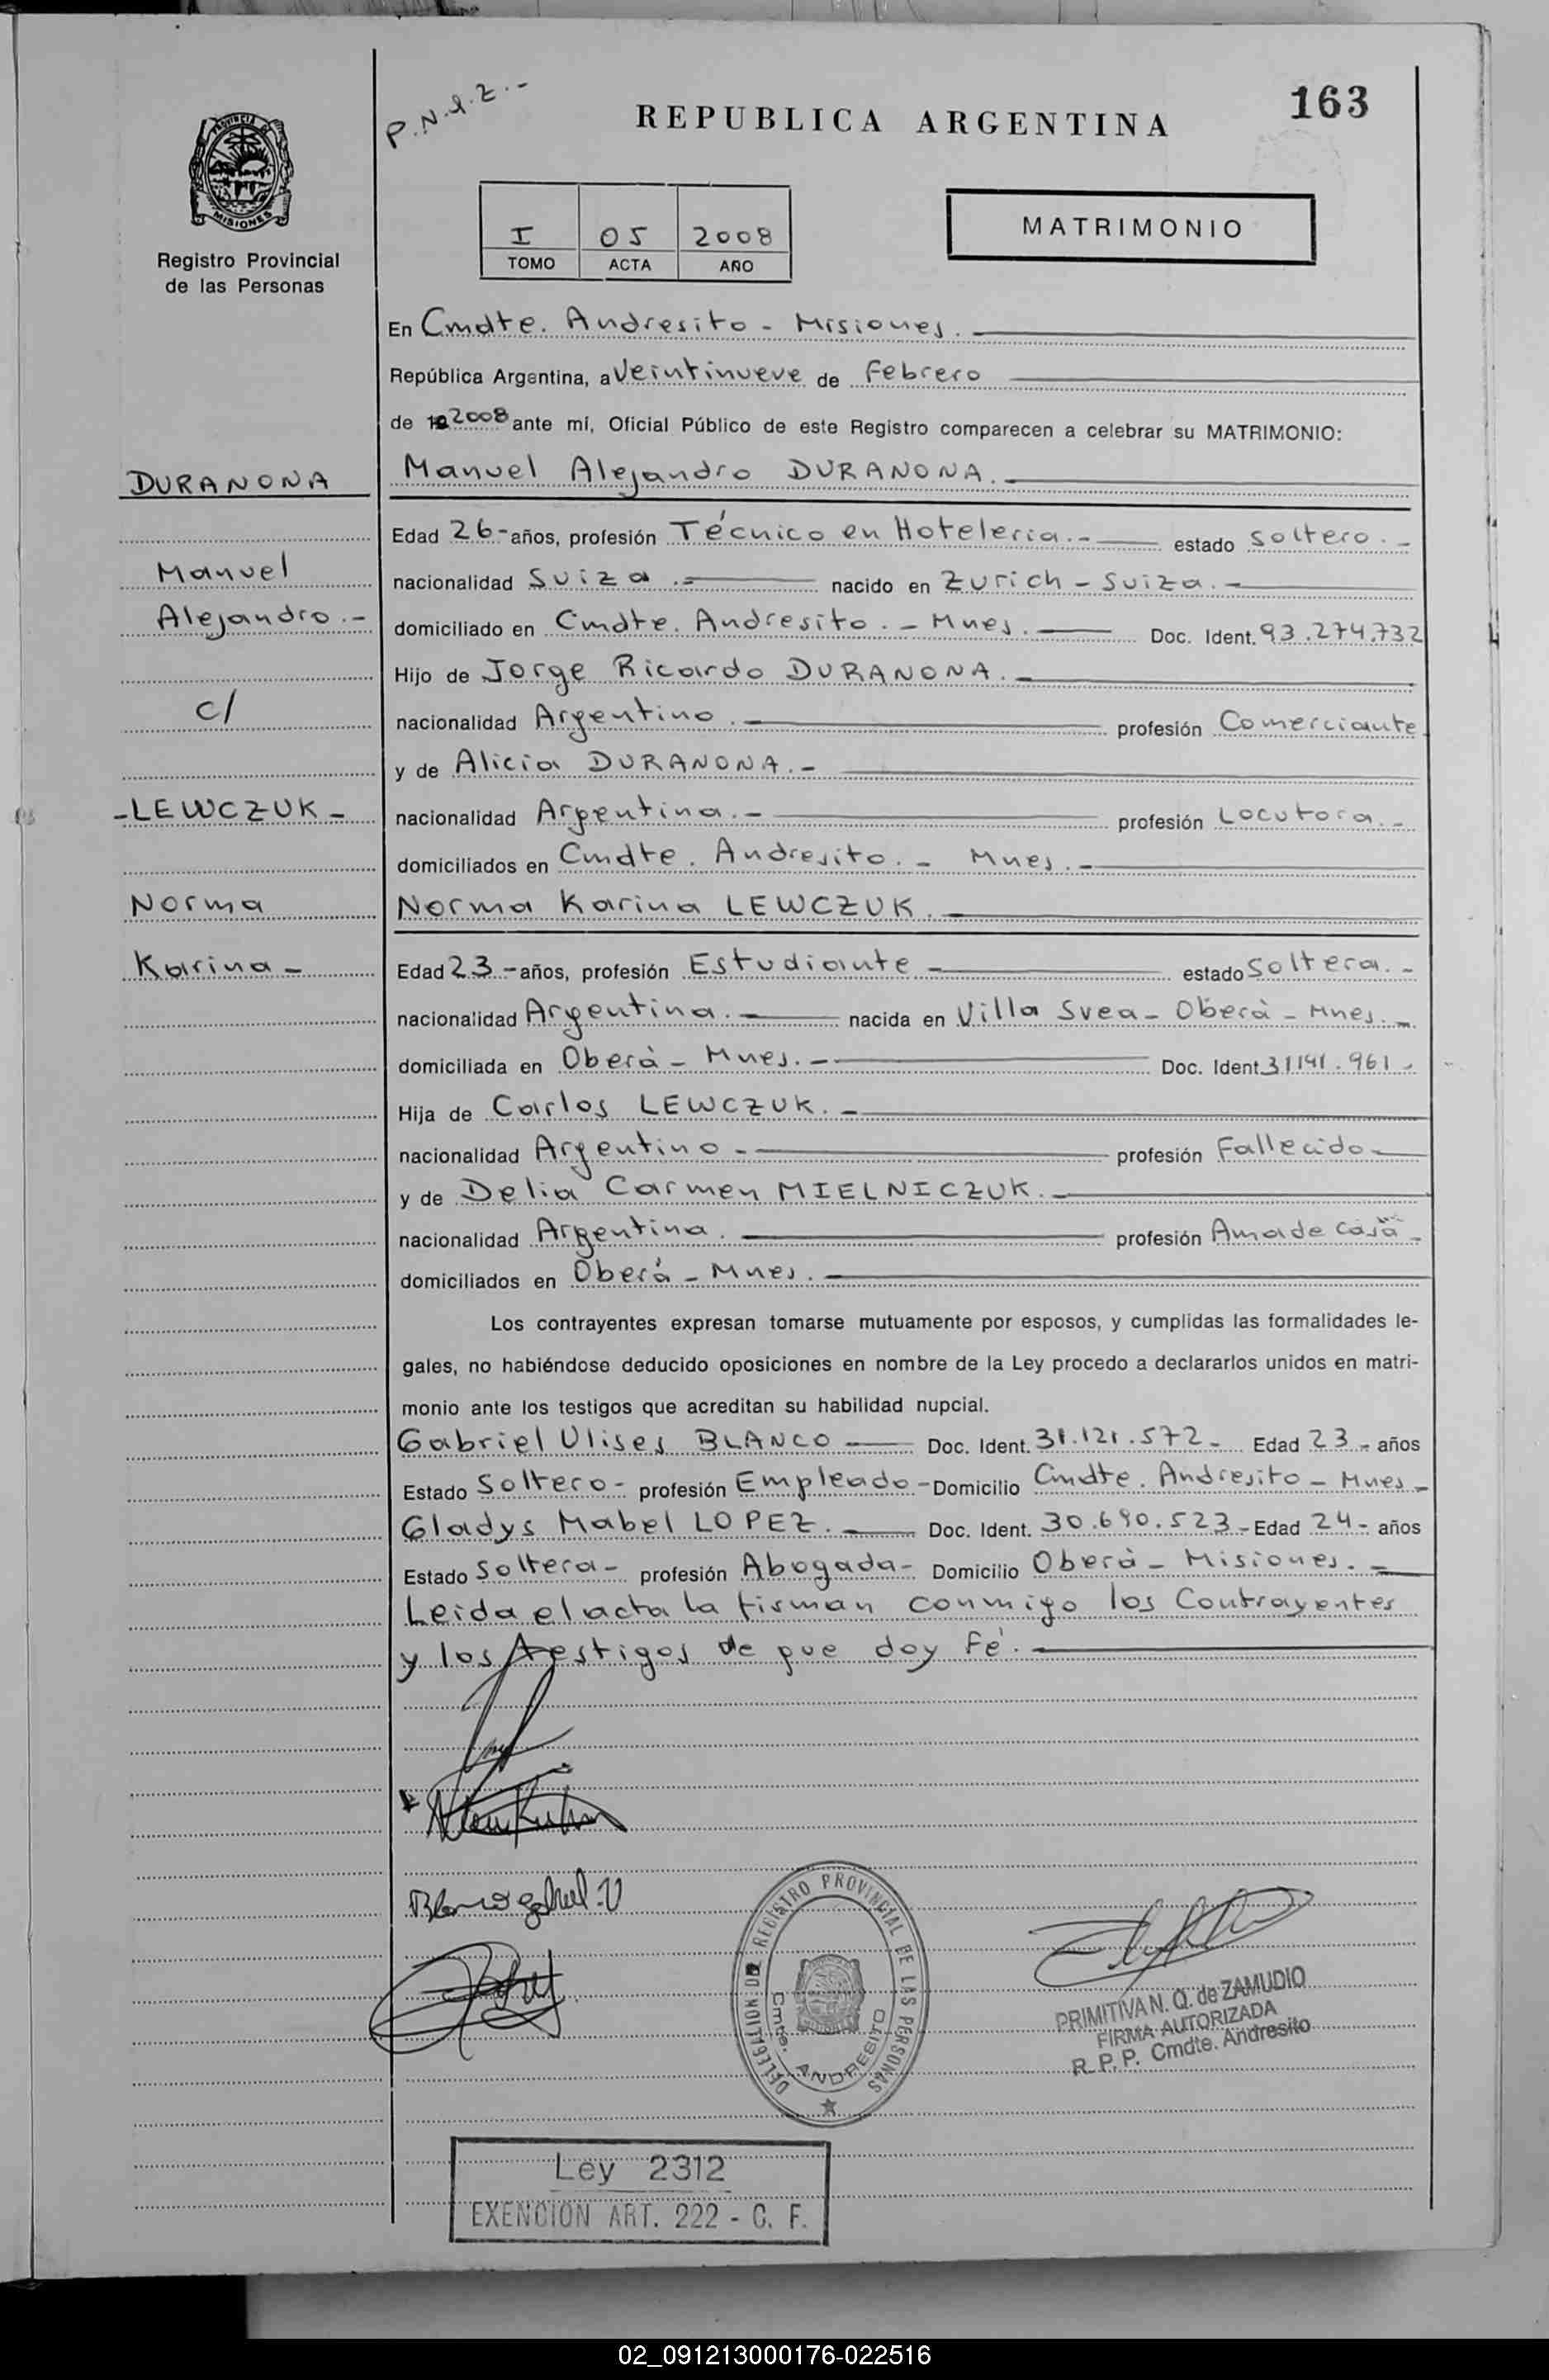 P.N.Q.Z.-
REPUBLICA ARGENTINA
163
PROVINCIA DE
MISIONES
Registro Provincial
de las Personas
I 05 2008
TOMO ACTA AÑO
MATRIMONIO
En Cmdte. Andresito - Misiones.
República Argentina, a Veintinueve de Febrero
de 2008 ante mí, Oficial Público de este Registro comparecen a celebrar su MATRIMONIO:
DURANONA
Manuel Alejandro DURANONA.
Edad 26- años, profesión Técnico en Hoteleria.- estado Soltero.-
Manuel
nacionalidad Suiza.- nacido en Zurich - Suiza.-
Alejandro.-
domiciliado en Cmdte. Andresito.- Mnes. Doc. Ident. 93.274.732
Hijo de Jorge Ricardo DURANONA.-
c/
nacionalidad Argentino.- profesión Comerciante
y de Alicia DURANONA.-
-LEWCZUK-
nacionalidad Argentina.- profesión Locutora.-
domiciliados en Cmdte. Andresito.- Mnes.-
Norma
Norma Karina LEWCZUK.-
Karina-
Edad 23.- años, profesión Estudiante - estado Soltera.-
nacionalidad Argentina.- nacida en Villa Svea - Oberà - Mnes.-
domiciliada en Oberà - Mnes.- Doc. Ident 31141.961.
Hija de Carlos LEWCZUK.-
nacionalidad Argentino - profesión Fallecido
y de Delia Carmen MIELNICZUK.-
nacionalidad Argentina. profesión Ama de casa -
domiciliados en Oberá - Mnes.
Los contrayentes expresan tomarse mutuamente por esposos, y cumplidas las formalidades le-
gales, no habiéndose deducido oposiciones en nombre de la Ley procedo a declararlos unidos en matri-
monio ante los testigos que acreditan su habilidad nupcial.
Gabriel Ulises BLANCO Doc. Ident. 31.121.572- Edad 23- años
Estado Soltero- profesión Empleado- Domicilio Cmdte. Andresito - Mnes-
Gladys Mabel LOPEZ. Doc. Ident. 30.690.523- Edad 24- años
Estado Soltera- profesión Abogada- Domicilio Oberà - Misiones.-
Leida el acta la firman conmigo los Contrayentes
y los testigos de que doy Fé.
DELEGACION DEL REGISTRO PROVINCIAL DE LAS PERSONAS
Cmte. ANDRESITO
PRIMITIVA N. Q. de ZAMUDIO
FIRMA AUTORIZADA
R. P. P. Cmdte. Andresito
Ley 2312
EXENCION ART. 222 - C. F.
02_091213000176-022516